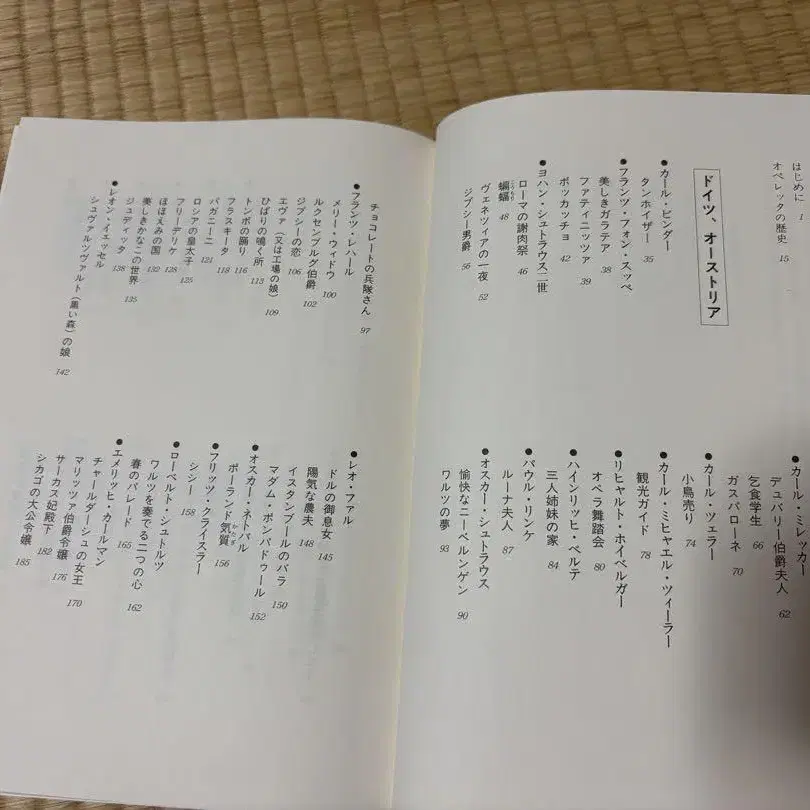 はじめに 1
オペレッタの歴史 15
ドイツ、オーストリア
●カール・ビンダー
タンホイザー 35
●フランツ・フォン・スッペ
美しきガラテア 38
ファティニッツァ 39
ボッカッチョ 42
●ヨハン・シュトラウス二世
ローマの謝肉祭 46
蝙蝠 48
ヴェネツィアの一夜 52
ジプシー男爵 56
●カール・ミレッカー
デュバリー伯爵夫人 62
乞食学生 66
ガスパローネ 70
●カール・ツェラー
小鳥売り 74
●カール・ミヒャエル・ツィーラー
観光ガイド 78
●リヒャルト・ホイベルガー
オペラ舞踏会 80
●ハインリッヒ・ベルテ
三人姉妹の家 84
●パウル・リンケ
ルーナ夫人 87
●オスカー・シュトラウス
愉快なニーベルンゲン 90
ワルツの夢 93
チョコレートの兵隊さん 97
●フランツ・レハール
メリー・ウィドウ 100
ルクセンブルグ伯爵 102
ジプシーの恋 106
エヴァ（又は工場の娘） 109
ひばりの鳴く所 113
トンボの踊り 116
フラスキータ 118
パガニーニ 121
ロシアの皇太子 125
フリーデリケ 128
ほほえみの国 132
美しきかなこの世界 135
ジュディッタ 138
●レオン・イェッセル
シュヴァルツヴァルト（黒い森）の娘 142
●レオ・ファル
ドルの御息女 145
陽気な農夫 148
イスタンブールのバラ 150
マダム・ポンパドゥール 152
●オスカー・ネドバル
ポーランド気質 156
●フリッツ・クライスラー
シシー 158
●ローベルト・シュトルツ
ワルツを奏でる二つの心 162
春のパレード 165
●エメリッヒ・カールマン
チャールダーシュの女王 170
マリッツァ伯爵令嬢 176
サーカス妃殿下 182
シカゴの大公令嬢 185